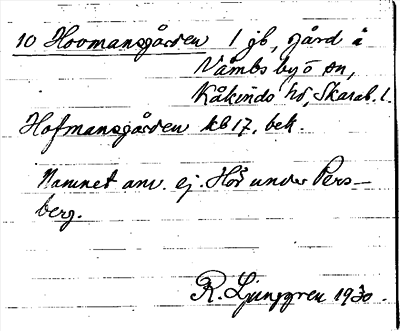 10 Hovmansgården 1 gb, gård i
Våmbs by o sn,
Kåkinds hd, Skarab. l.
Hofmansgården kb 17. bek.
Namnet anv. ej. Hör under Pers-
berg.
R. Ljunggren 1930.